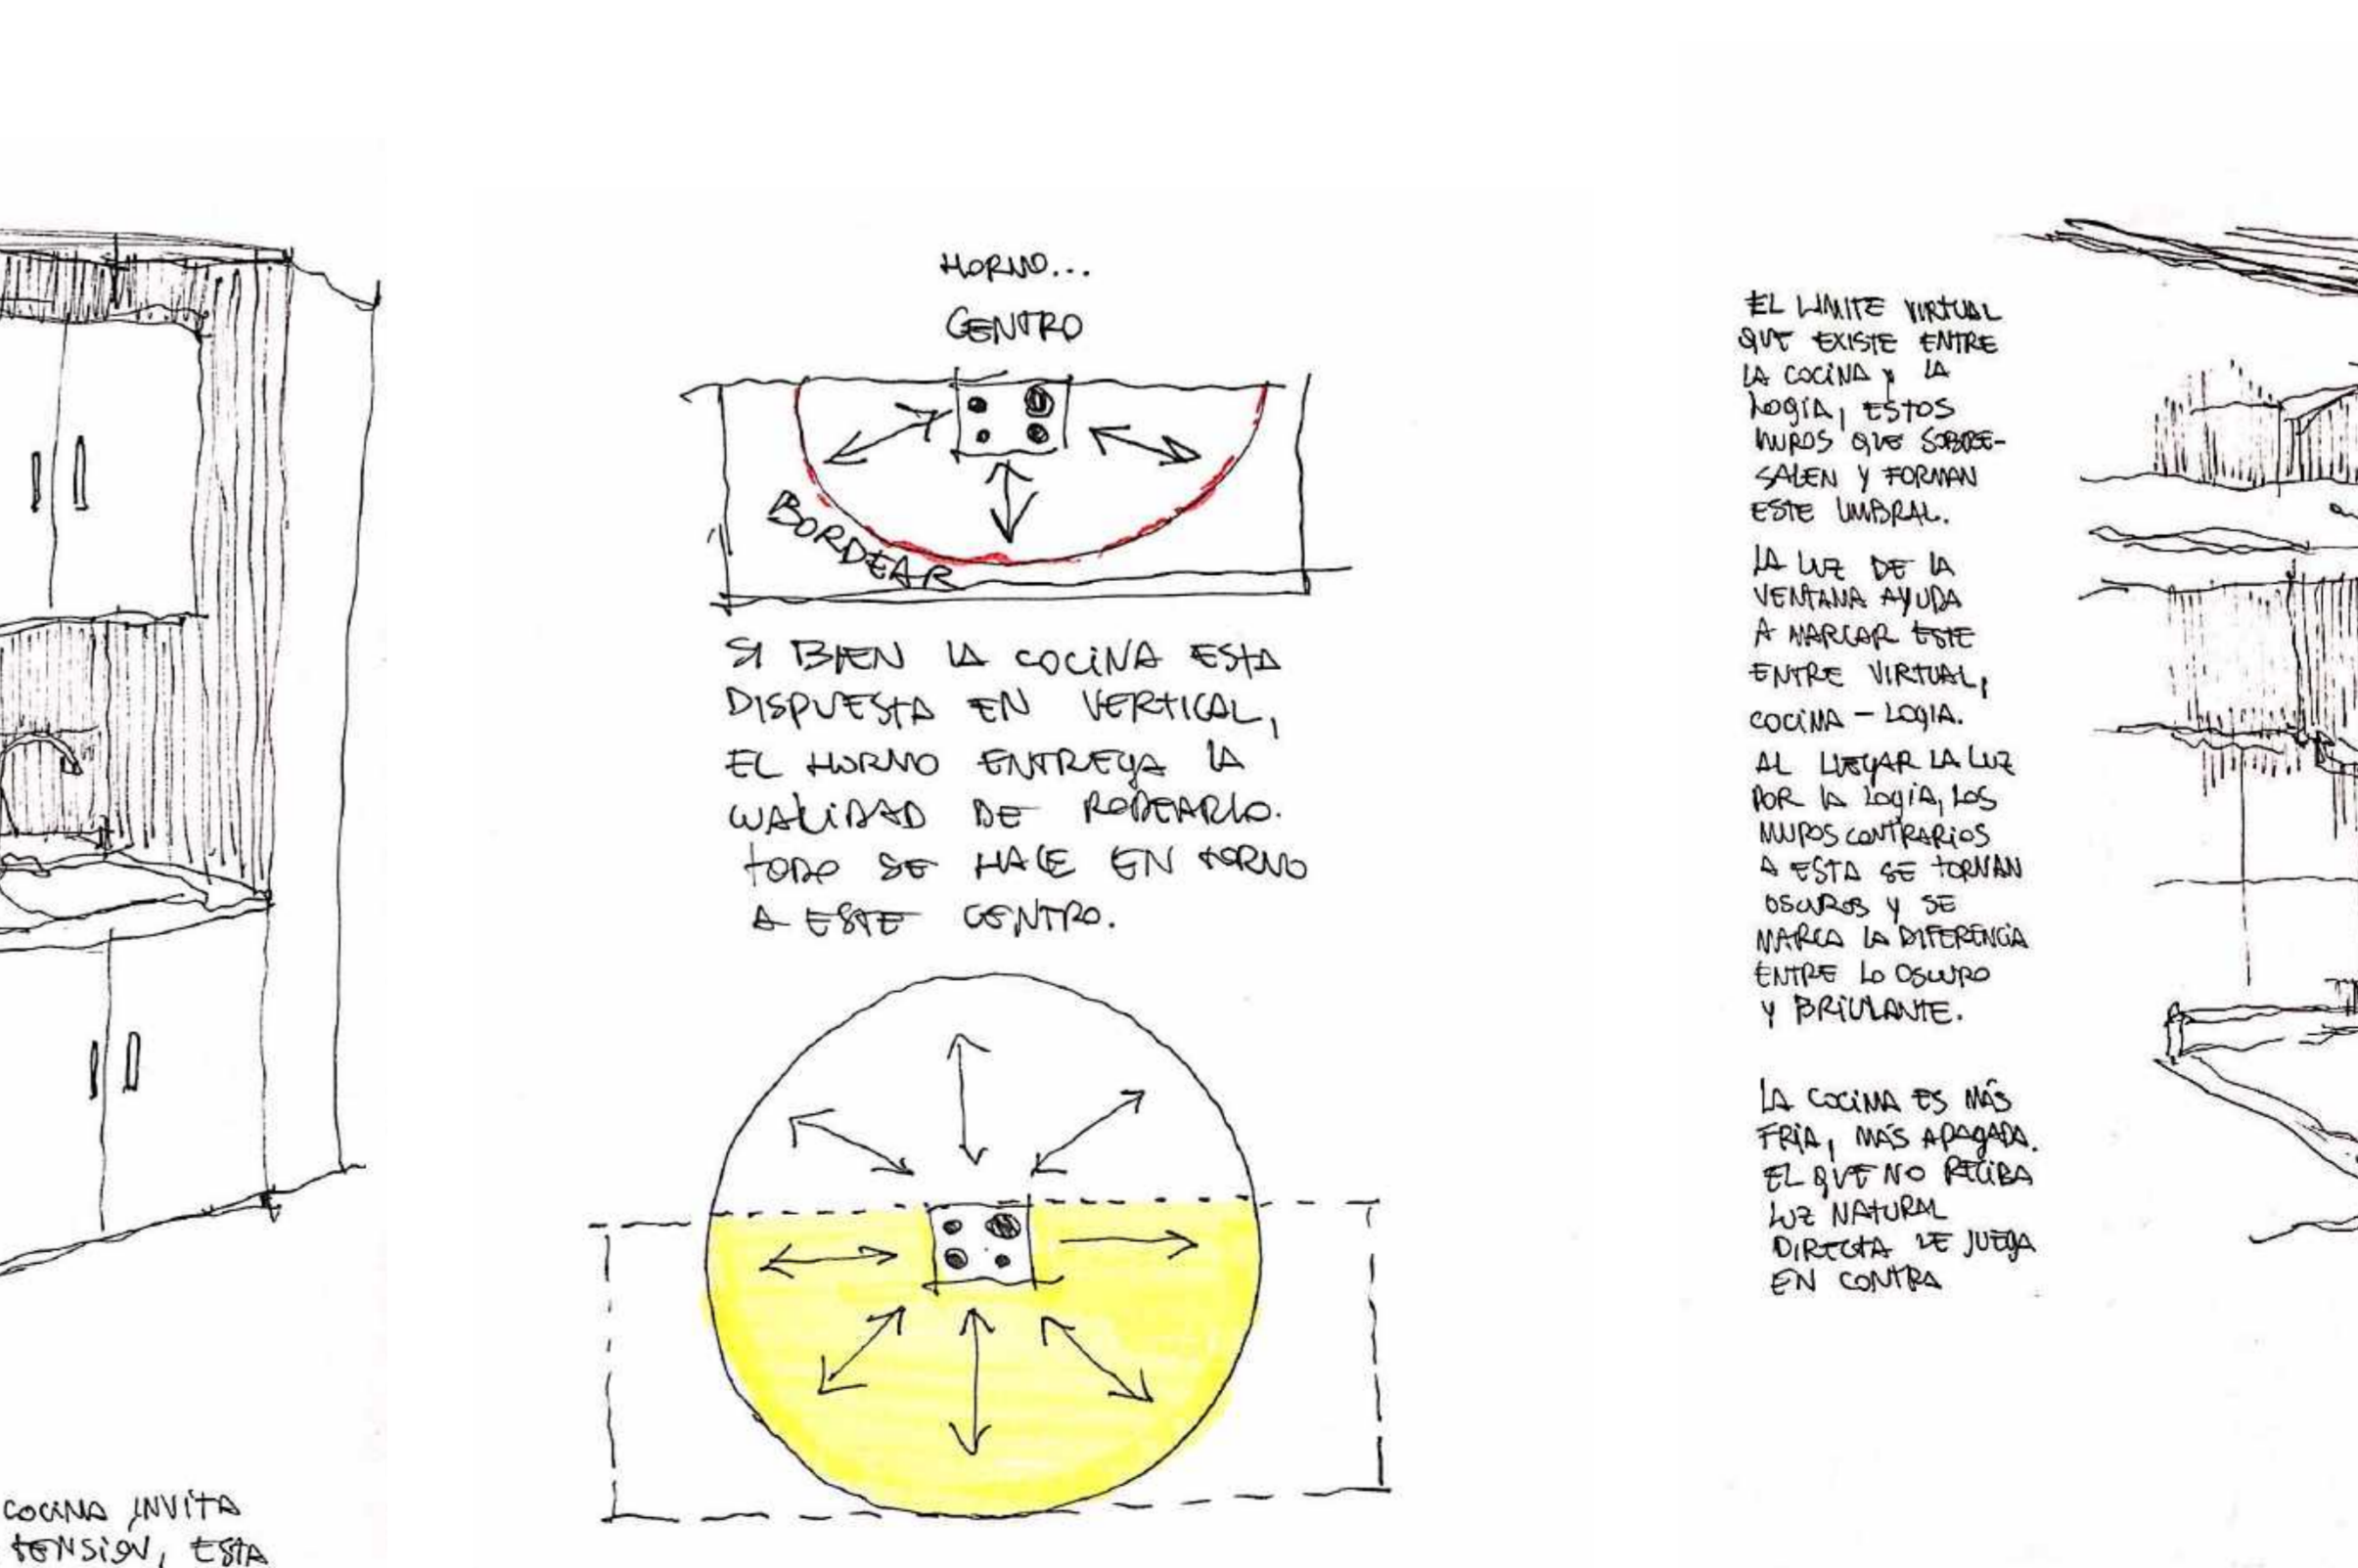 HORNO...
CENTRO
BORDEAR
SI BIEN LA COCINA ESTA
DISPUESTA EN VERTICAL,
EL HORNO ENTREGA LA
CUALIDAD DE RODEARLO.
TODO SE HACE EN TORNO
A ESTE CENTRO.
COCINA INVITA
TENSION, ESTA
EL LIMITE VIRTUAL
QUE EXISTE ENTRE
LA COCINA Y LA
LOGIA, ESTOS
MUROS QUE SOBRE-
SALEN Y FORMAN
ESTE UMBRAL.
LA LUZ DE LA
VENTANA AYUDA
A MARCAR ESTE
ENTRE VIRTUAL,
COCINA - LOGIA.
AL LLEGAR LA LUZ
POR LA LOGIA, LOS
MUROS CONTRARIOS
A ESTA SE TORNAN
OSCUROS Y SE
MARCA LA DIFERENCIA
ENTRE LO OSCURO
Y BRILLANTE.
LA COCINA ES MÁS
FRÍA, MÁS APAGADA.
EL QUE NO RECIBA
LUZ NATURAL
DIRECTA LE JUEGA
EN CONTRA